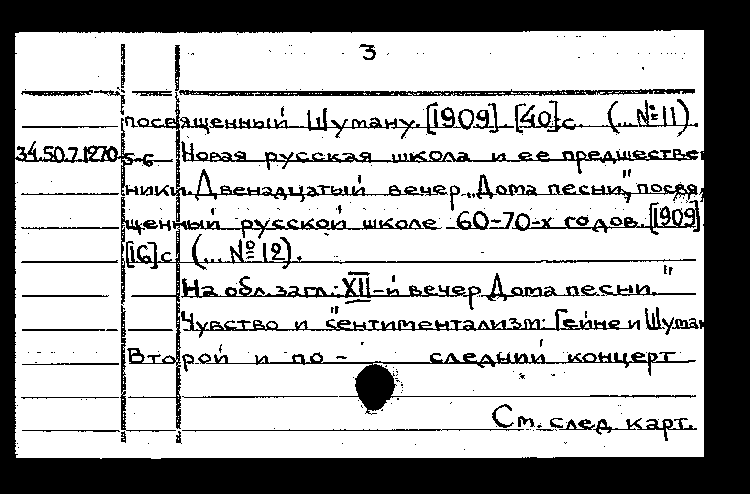 3
посвященный Шуману. [1909]. [40]с. (... №11).
34.50.7.1270 5-6 Новая русская школа и ее предшествен
ники. Двенадцатый вечер „Дома песни," посвя,
щенный русской школе 60-70-х годов. [1909]
[16]с (... №12).
На обл. загл.: XII-й вечер Дома песни."
Чувство и "сентиментализм: Гейне и Шуман
Второй и по- следний концерт
См. след. карт.